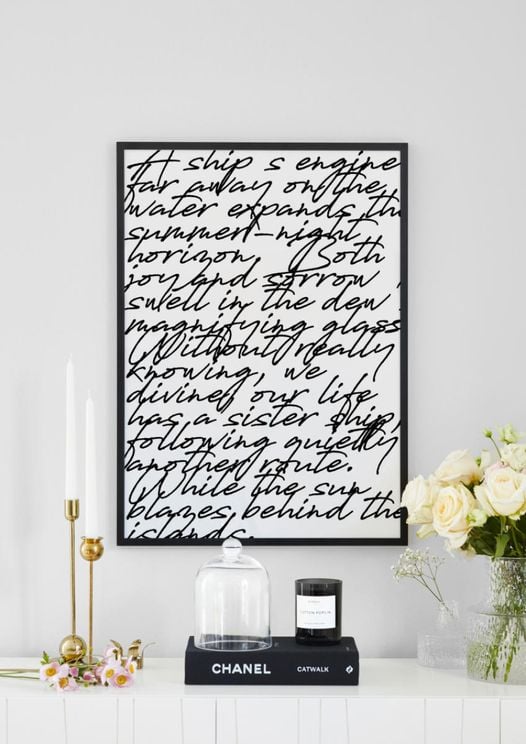 A ship s engine
far away on the
water expands th
summer-night
horizon. Both
joy and sorrow
swell in the dew
magnifying glass
Without really
knowing, we
divine, our life
has a sister ship,
following quietly
another route.
While the sun
blazes behind the
islands.
COTTON POPLIN
CHANEL CATWALK